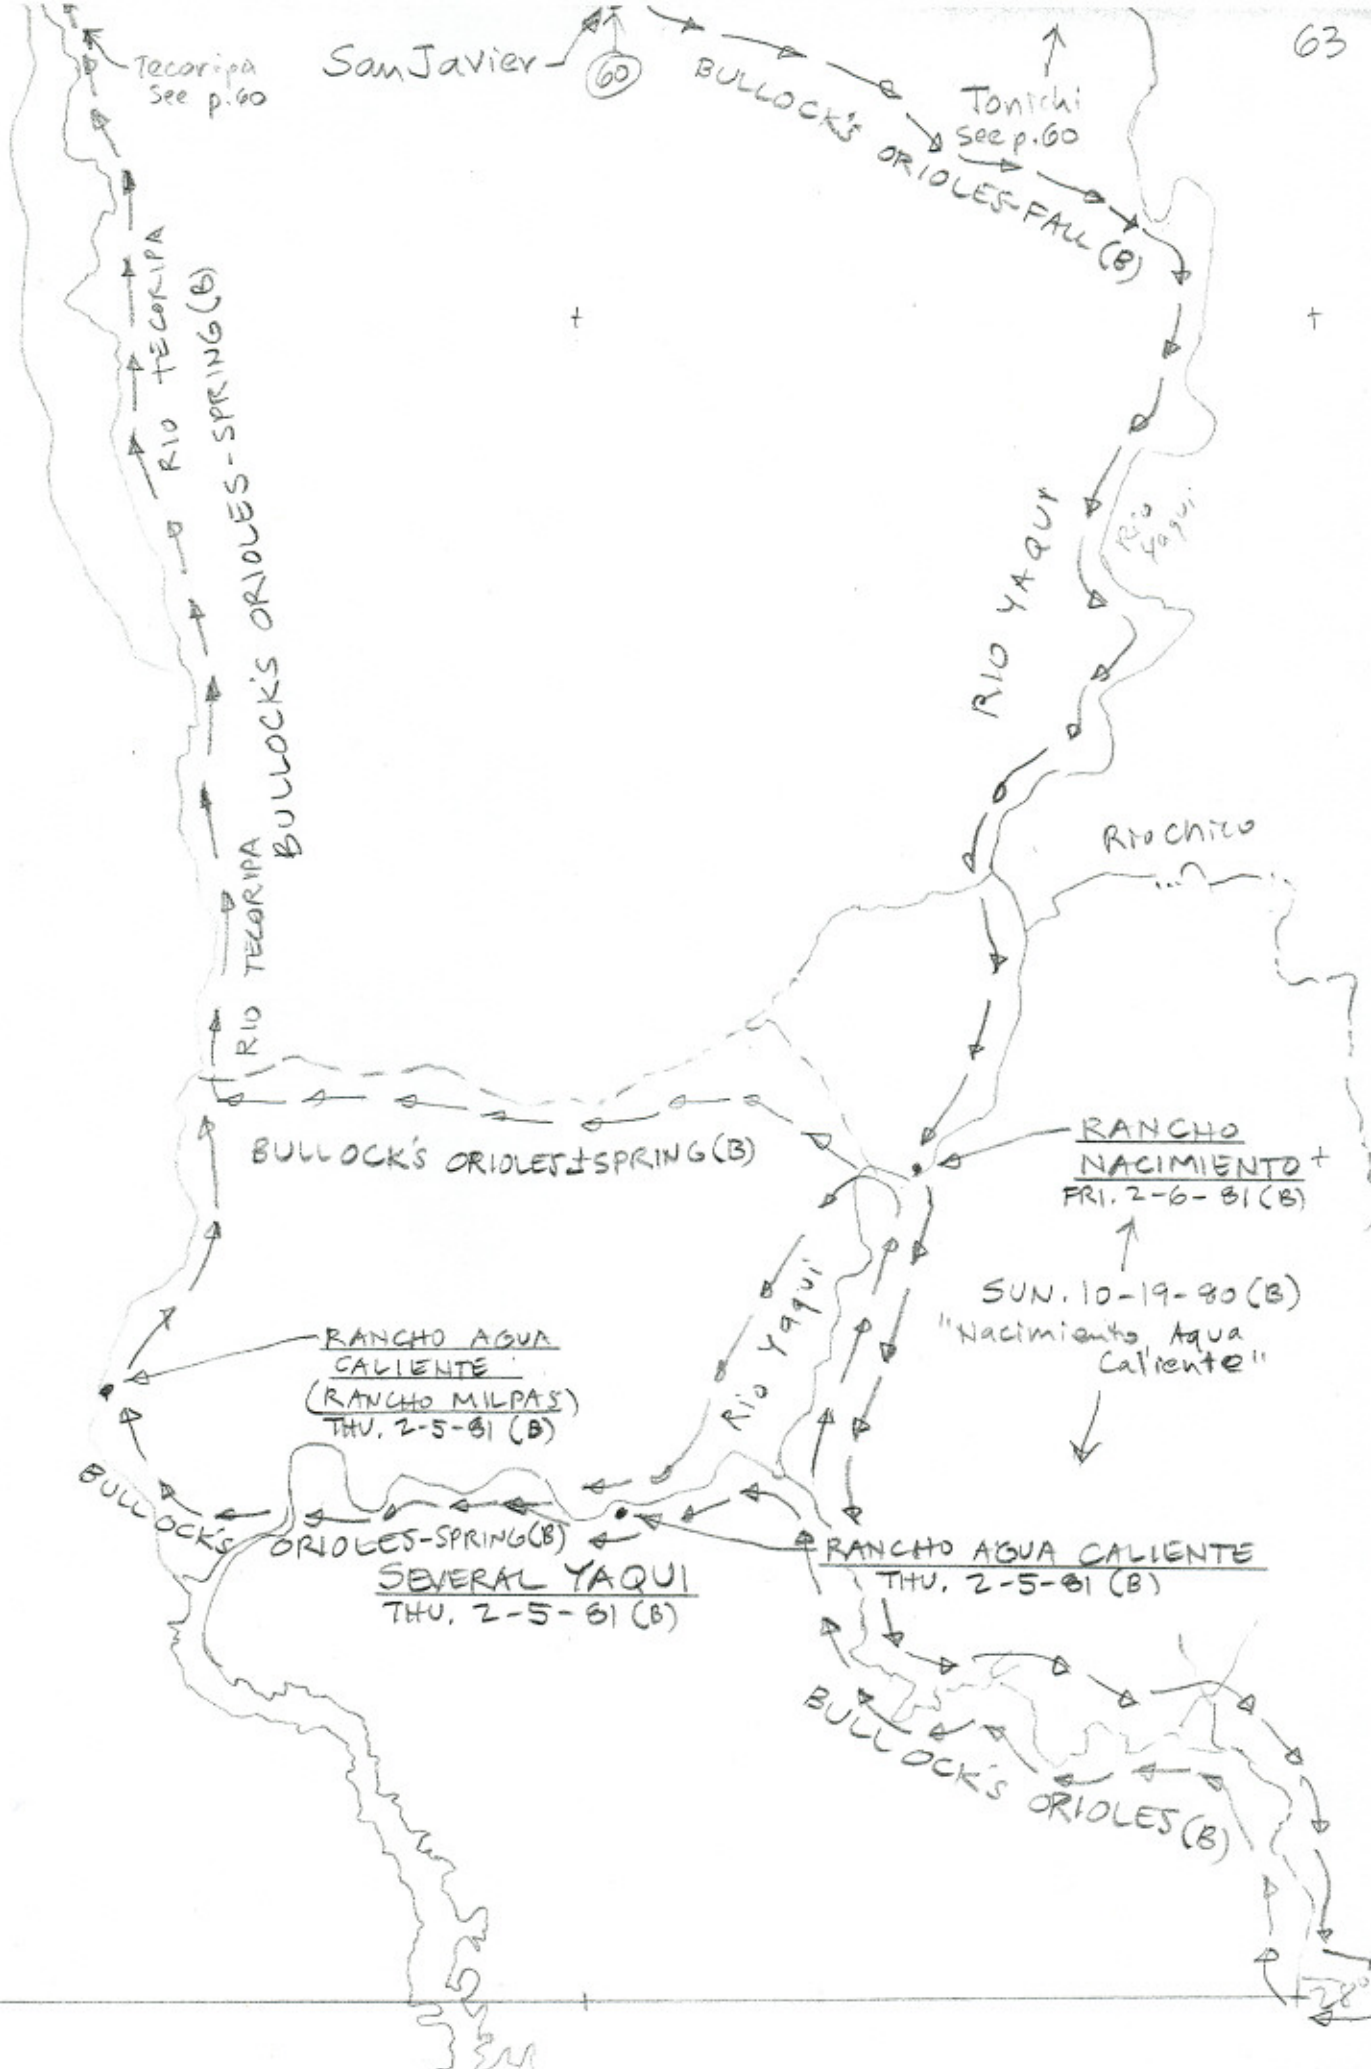 63
Tecoripa
See p.60
San Javier
60
BULLOCK'S ORIOLES-FALL (B)
Tonichi
See p.60
RIO TECORIPA
BULLOCK'S ORIOLES-SPRING (B)
RIO YAQUI
Rio
Yaqui
Rio Chico
RIO TECORIPA
BULLOCK'S ORIOLES±SPRING (B)
RANCHO
NACIMIENTO
FRI. 2-6-81 (B)
SUN. 10-19-80 (B)
"Nacimiento Aqua
Caliente"
Rio Yaqui
RANCHO AGUA
CALIENTE
(RANCHO MILPAS)
THU. 2-5-81 (B)
BULLOCK'S ORIOLES-SPRING (B)
SEVERAL YAQUI
THU. 2-5-81 (B)
RANCHO AGUA CALIENTE
THU. 2-5-81 (B)
BULLOCK'S ORIOLES (B)
28°